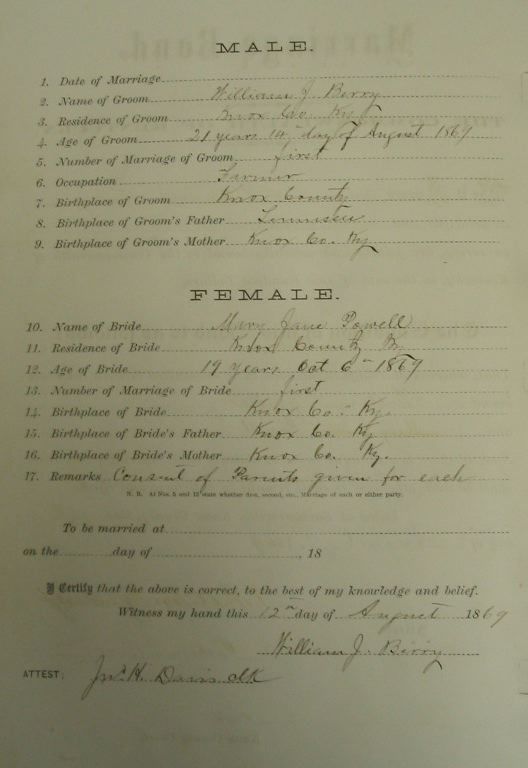 MALE.
1. Date of Marriage
2. Name of Groom William J. Berry
3. Residence of Groom Knox Co. Ky
4. Age of Groom 21 years 14th day of August 1869
5. Number of Marriage of Groom first
6. Occupation Farmer
7. Birthplace of Groom Knox County
8. Birthplace of Groom's Father Tennessee
9. Birthplace of Groom's Mother Knox Co. Ky
FEMALE.
10. Name of Bride Mary Jane Powell
11. Residence of Bride Knox County Ky
12. Age of Bride 19 years Oct 6th 1869
13. Number of Marriage of Bride first
14. Birthplace of Bride Knox Co. Ky.
15. Birthplace of Bride's Father Knox Co. Ky
16. Birthplace of Bride's Mother Knox Co. Ky.
17. Remarks Consent of Parents given for each
N. B. At Nos. 5 and 13 state whether first, second, etc., Marriage of each or either party.
To be married at
on the day of , 18
I Certify that the above is correct, to the best of my knowledge and belief.
Witness my hand this 12th day of August 1869
William J. Berry
ATTEST: Jno. H. Davis clk